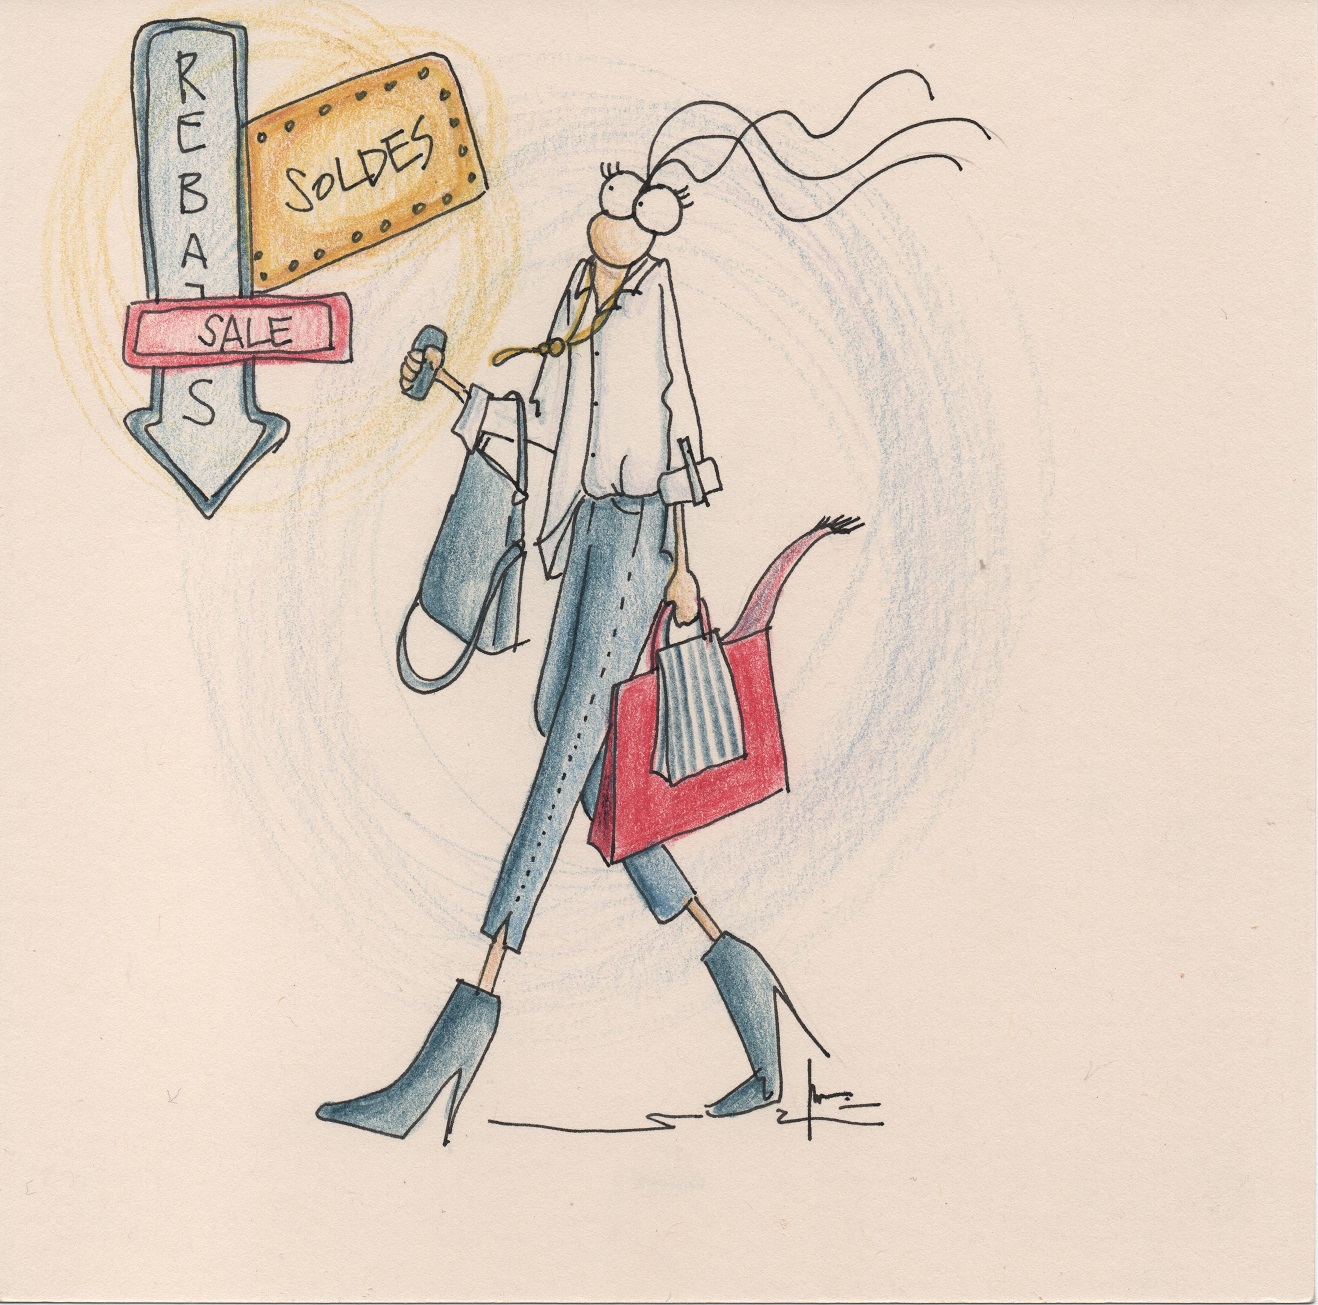 REBAJS
SOLDES
SALE